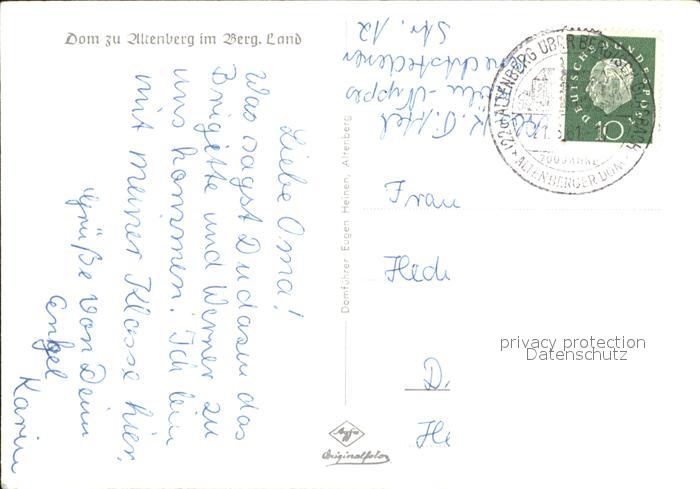 Dom zu Altenberg im Berg. Land
Liebe Oma!
Was sagst Du dazu das
Brigitte und Werner zu
uns kommen. Ich bin
mit meiner Klasse hier.
Grüße von Dein
Enkel
Karin
Domführer Eugen Heinen, Altenberg
Agfa
Originalfoto
Str. 12
Frau
Hede
D.
He
DEUTSCHE BUNDESPOST
10
(22c) ALTENBERG ÜBER BERGISCH GLADBACH
700 JAHRE
ALTENBERGER DOM
privacy protection
Datenschutz